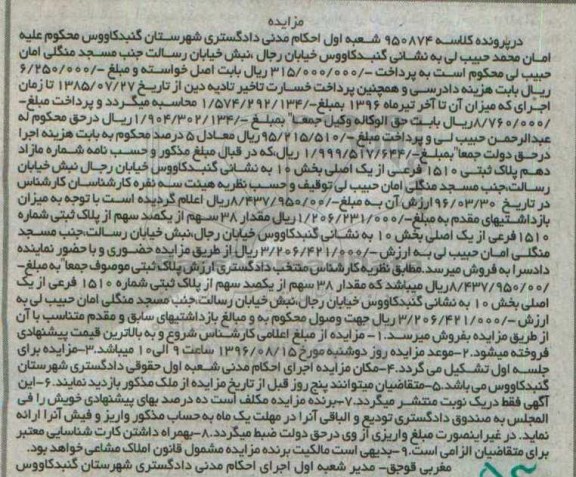 مزایده
درپرونده کلاسه ۹۵۰۸۷۴ شعبه اول احکام مدنی دادگستری شهرستان گنبدکاووس محکوم علیه
امان محمد حبیب لی به نشانی گنبدکاووس خیابان رجال ،نبش خیابان رسالت جنب مسجد منگلی امان
حبیب لی محکوم است به پرداخت -/۳۱۵/۰۰۰/۰۰۰ ریال بابت اصل خواسته و مبلغ -/۶/۲۵۰/۰۰۰
ریال بابت هزینه دادرسی و همچنین پرداخت خسارت تاخیر تادیه دین از تاریخ ۱۳۸۵/۰۷/۲۷ تا زمان
اجرای که میزان آن تا آخر تیرماه ۱۳۹۶ بمبلغ-/۱/۵۷۴/۲۹۲/۱۳۴ محاسبه میگردد و پرداخت مبلغ-
/۸/۷۶۰/۰۰۰ریال بابت حق الوکاله وکیل جمعا" بمبلغ -/۱/۹۰۴/۳۰۲/۱۳۴ ریال درحق محکوم له
عبدالرحمن حبیب لی و پرداخت مبلغ -/۹۵/۲۱۵/۵۱۰ریال معادل ۵ درصد محکوم به بابت هزینه اجرا
درحق دولت جمعا"بمبلغ-/۱/۹۹۹/۵۱۷/۶۴۴ ریال،که در قبال مبلغ مذکور و حسب نامه شماره مازاد
دهم پلاک ثبتی ۱۵۱۰ فرعی از یک اصلی بخش ۱۰ به نشانی گنبدکاووس خیابان رجال نبش خیابان
رسالت،جنب مسجد منگلی امان حبیب لی توقیف و حسب نظریه هیئت سه نفره کارشناسان کارشناس
در تاریخ ۹۶/۰۳/۳۰ ارزش آن به مبلغ-/۸/۴۳۷/۹۵۰/۰۰۰ریال اعلام گردیده است با توجه به میزان
بازداشتیهای مقدم به مبلغ-/۱/۲۰۶/۲۳۱/۰۰۰ریال مقدار ۳۸ سهم از یکصد سهم از پلاک ثبتی شماره
۱۵۱۰فرعی از یک اصلی بخش ۱۰ به نشانی گنبدکاووس خیابان رجال،نبش خیابان رسالت،جنب مسجد
منگلی امان حبیب لی به ارزش -/۳/۲۰۶/۴۲۱/۰۰۰ ریال از طریق مزایده حضوری و با حضور نماینده
دادسرا به فروش میرسد.مطابق نظریه کارشناس منتخب دادگستری ارزش پلاک ثبتی موصوف جمعا" به مبلغ-
/۸/۴۳۷/۹۵۰/۰۰۰ریال میباشد که مقدار ۳۸ سهم از یکصد سهم از پلاک ثبتی شماره ۱۵۱۰ فرعی از یک
اصلی بخش ۱۰ به نشانی گنبدکاووس خیابان رجال،نبش خیابان رسالت،جنب مسجد منگلی امان حبیب لی به
ارزش -/۳/۲۰۶/۴۲۱/۰۰۰ ریال جهت وصول محکوم به و مبالغ بازداشتیهای سابق و مقدم متناسب با آن
از طریق مزایده بفروش میرسد.۱- مزایده از مبلغ اعلامی کارشناس شروع و به بالاترین قیمت پیشنهادی
فروخته میشود.۲-موعد مزایده روز دوشنبه مورخ ۱۳۹۶/۰۸/۱۵ ساعت ۹ الی ۱۰ میباشد.۳-مزایده برای
جلسه اول تشکیل می گردد.۴-مکان مزایده اجرای احکام مدنی شعبه اول حقوقی دادگستری شهرستان
گنبدکاووس می باشد.۵-متقاضیان میتوانند پنج روز قبل از تاریخ مزایده از ملک مذکور بازدید نمایند.۶-این
آگهی فقط دریک نوبت منتشر میگردد.۷-برنده مزایده مکلف است ده درصد بهای پیشنهادی خویش را فی
المجلس به صندوق دادگستری تودیع و الباقی آنرا در مهلت یک ماه به حساب مذکور واریز و فیش آنرا ارائه
نماید. در غیر اینصورت مبلغ واریزی از وی درحق دولت ضبط میگردد.۸-بهمراه داشتن کارت شناسایی معتبر
برای متقاضیان الزامی است.۹-بدیهی است مالکیت برنده مزایده مشمول قانون املاک مشاعی خواهد بود.
مغربی قوجق- مدیر شعبه اول اجرای احکام مدنی دادگستری شهرستان گنبدکاووس